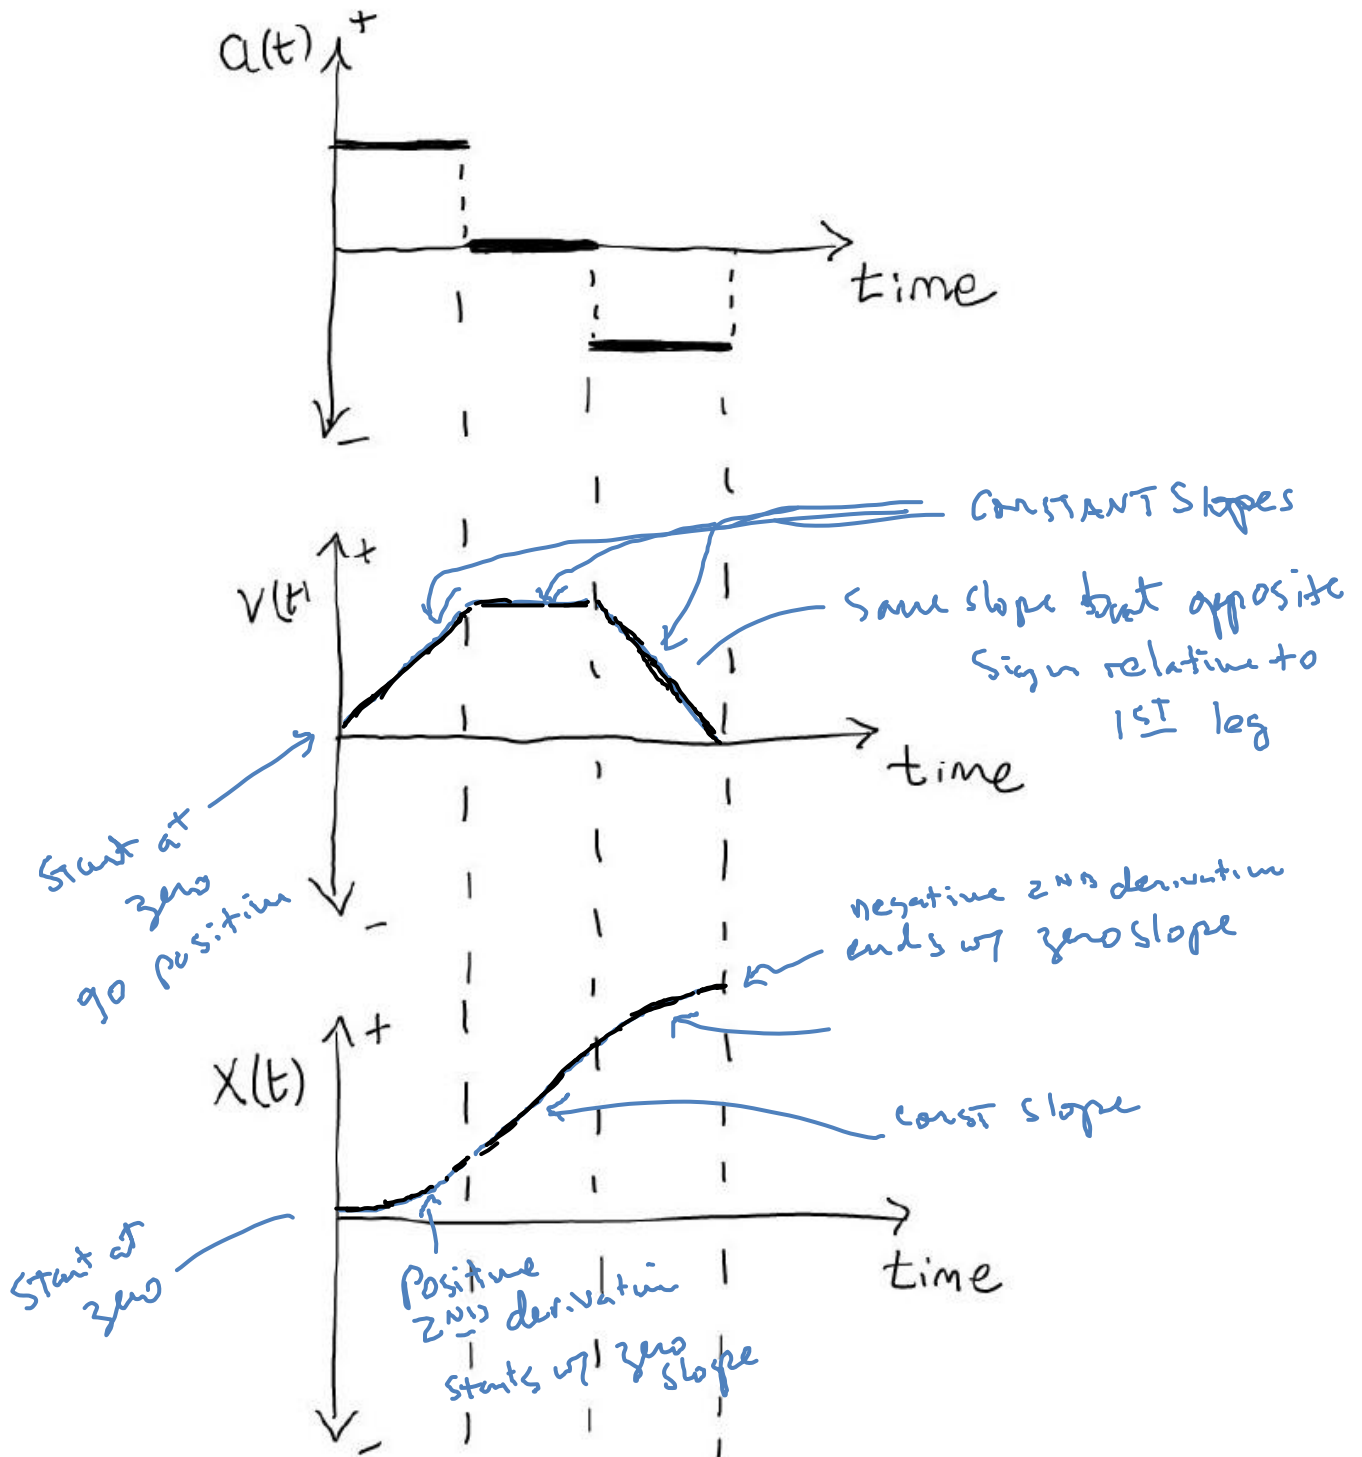 a(t)
+
time
-
CONSTANT Slopes
+
V(t)
Same slope but opposite
sign relative to
1ST leg
time
Start at
zero
go positive
-
negative 2ND derivative
ends w/ zero slope
+
X(t)
const slope
Start at
zero
time
Positive
2ND derivative
starts w/ zero
slope
-